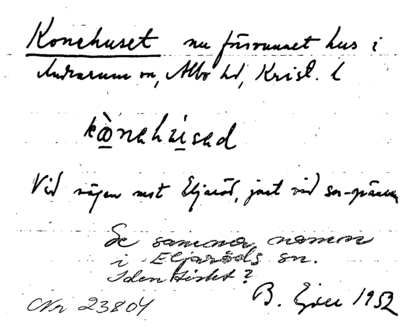 Konehuset nu försvunnet hus i
Andrarum sn, Albo hd, Krist. l
Vid vägen mot Eljaröd, just vid sn-gränsen
Se samma namn
i Eljaröds sn.
Identiskt?
B. Ejder 1952
Nr 23804